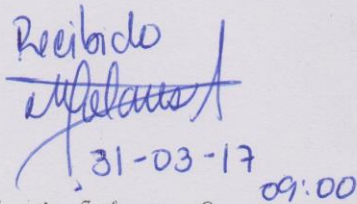 Recibido
31-03-17
09:00